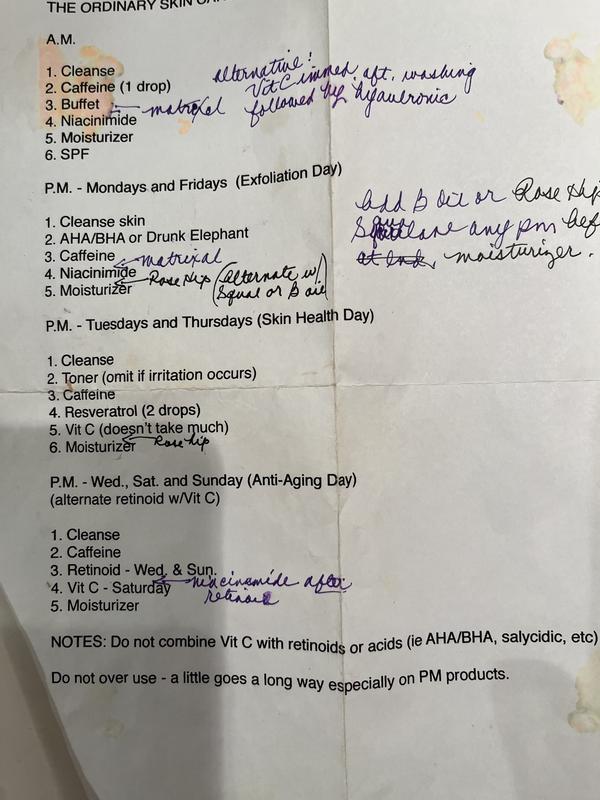 THE ORDINARY SKIN
A.M.
1. Cleanse
2. Caffeine (1 drop)
3. Buffet matrixal
4. Niacinimide
5. Moisturizer
6. SPF
alternative!
Vit C immed. aft. washing
followed by hyaluronic
P.M. - Mondays and Fridays (Exfoliation Day)
add B oil or Rose Hip
Squalane any pm bef
at end, moisturizer.
1. Cleanse skin
2. AHA/BHA or Drunk Elephant
3. Caffeine matrixal
4. Niacinimide
5. Moisturizer Rose Hip (alternate w/
Squal or B oil)
P.M. - Tuesdays and Thursdays (Skin Health Day)
1. Cleanse
2. Toner (omit if irritation occurs)
3. Caffeine
4. Resveratrol (2 drops)
5. Vit C (doesn't take much)
6. Moisturizer Rose hip
P.M. - Wed., Sat. and Sunday (Anti-Aging Day)
(alternate retinoid w/Vit C)
1. Cleanse
2. Caffeine
3. Retinoid - Wed. & Sun.
4. Vit C - Saturday niacinamide after
retinoid
5. Moisturizer
NOTES: Do not combine Vit C with retinoids or acids (ie AHA/BHA, salycidic, etc)
Do not over use - a little goes a long way especially on PM products.